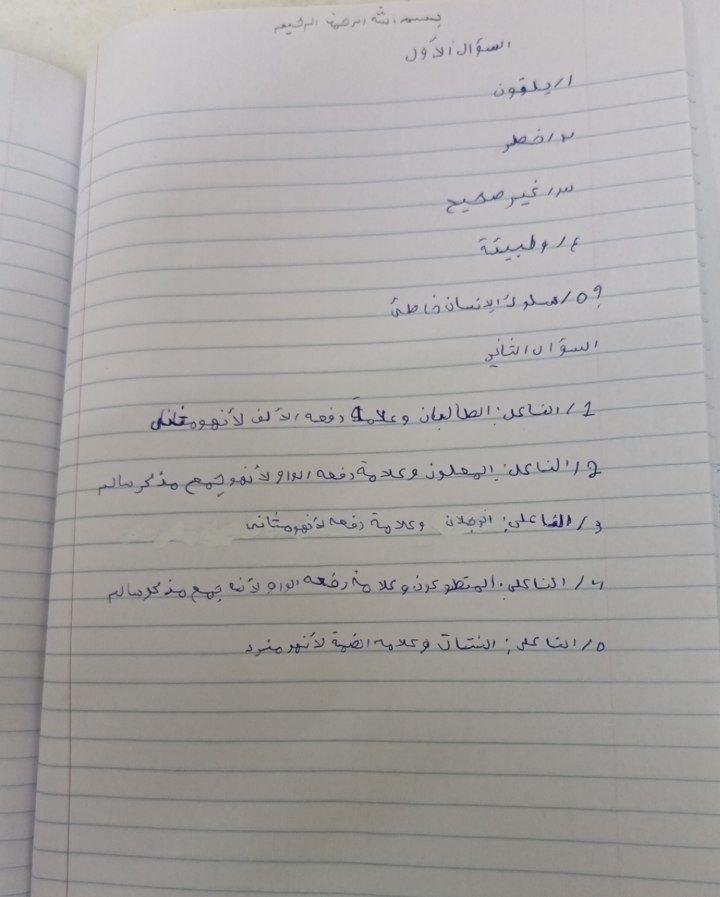 بسم الله الرحمن الرحيم
السؤال الأول
١/ يلقون
٢/ خطر
٣/ غير صحيح
٤/ وطبيئة
؟ ٥/ سلوك الإنسان خاطئ
السؤال الثاني
1/ الفاعل: الطالبان وعلامة رفعه الألف لأنهو مثانى
2/ الفاعل: المعلون وعلامة رفعه الواو لأنهو جمع مذكر سالم
3/ الفاعل: الرجلان وعلامة رفعه لأنهو مثانى
4/ الفاعل: المتطوعون وعلامة رفعه الواو لأنه جمع مذكر سالم
٥/ الفاعل: وعلامه الضمة لأنهو مفرد